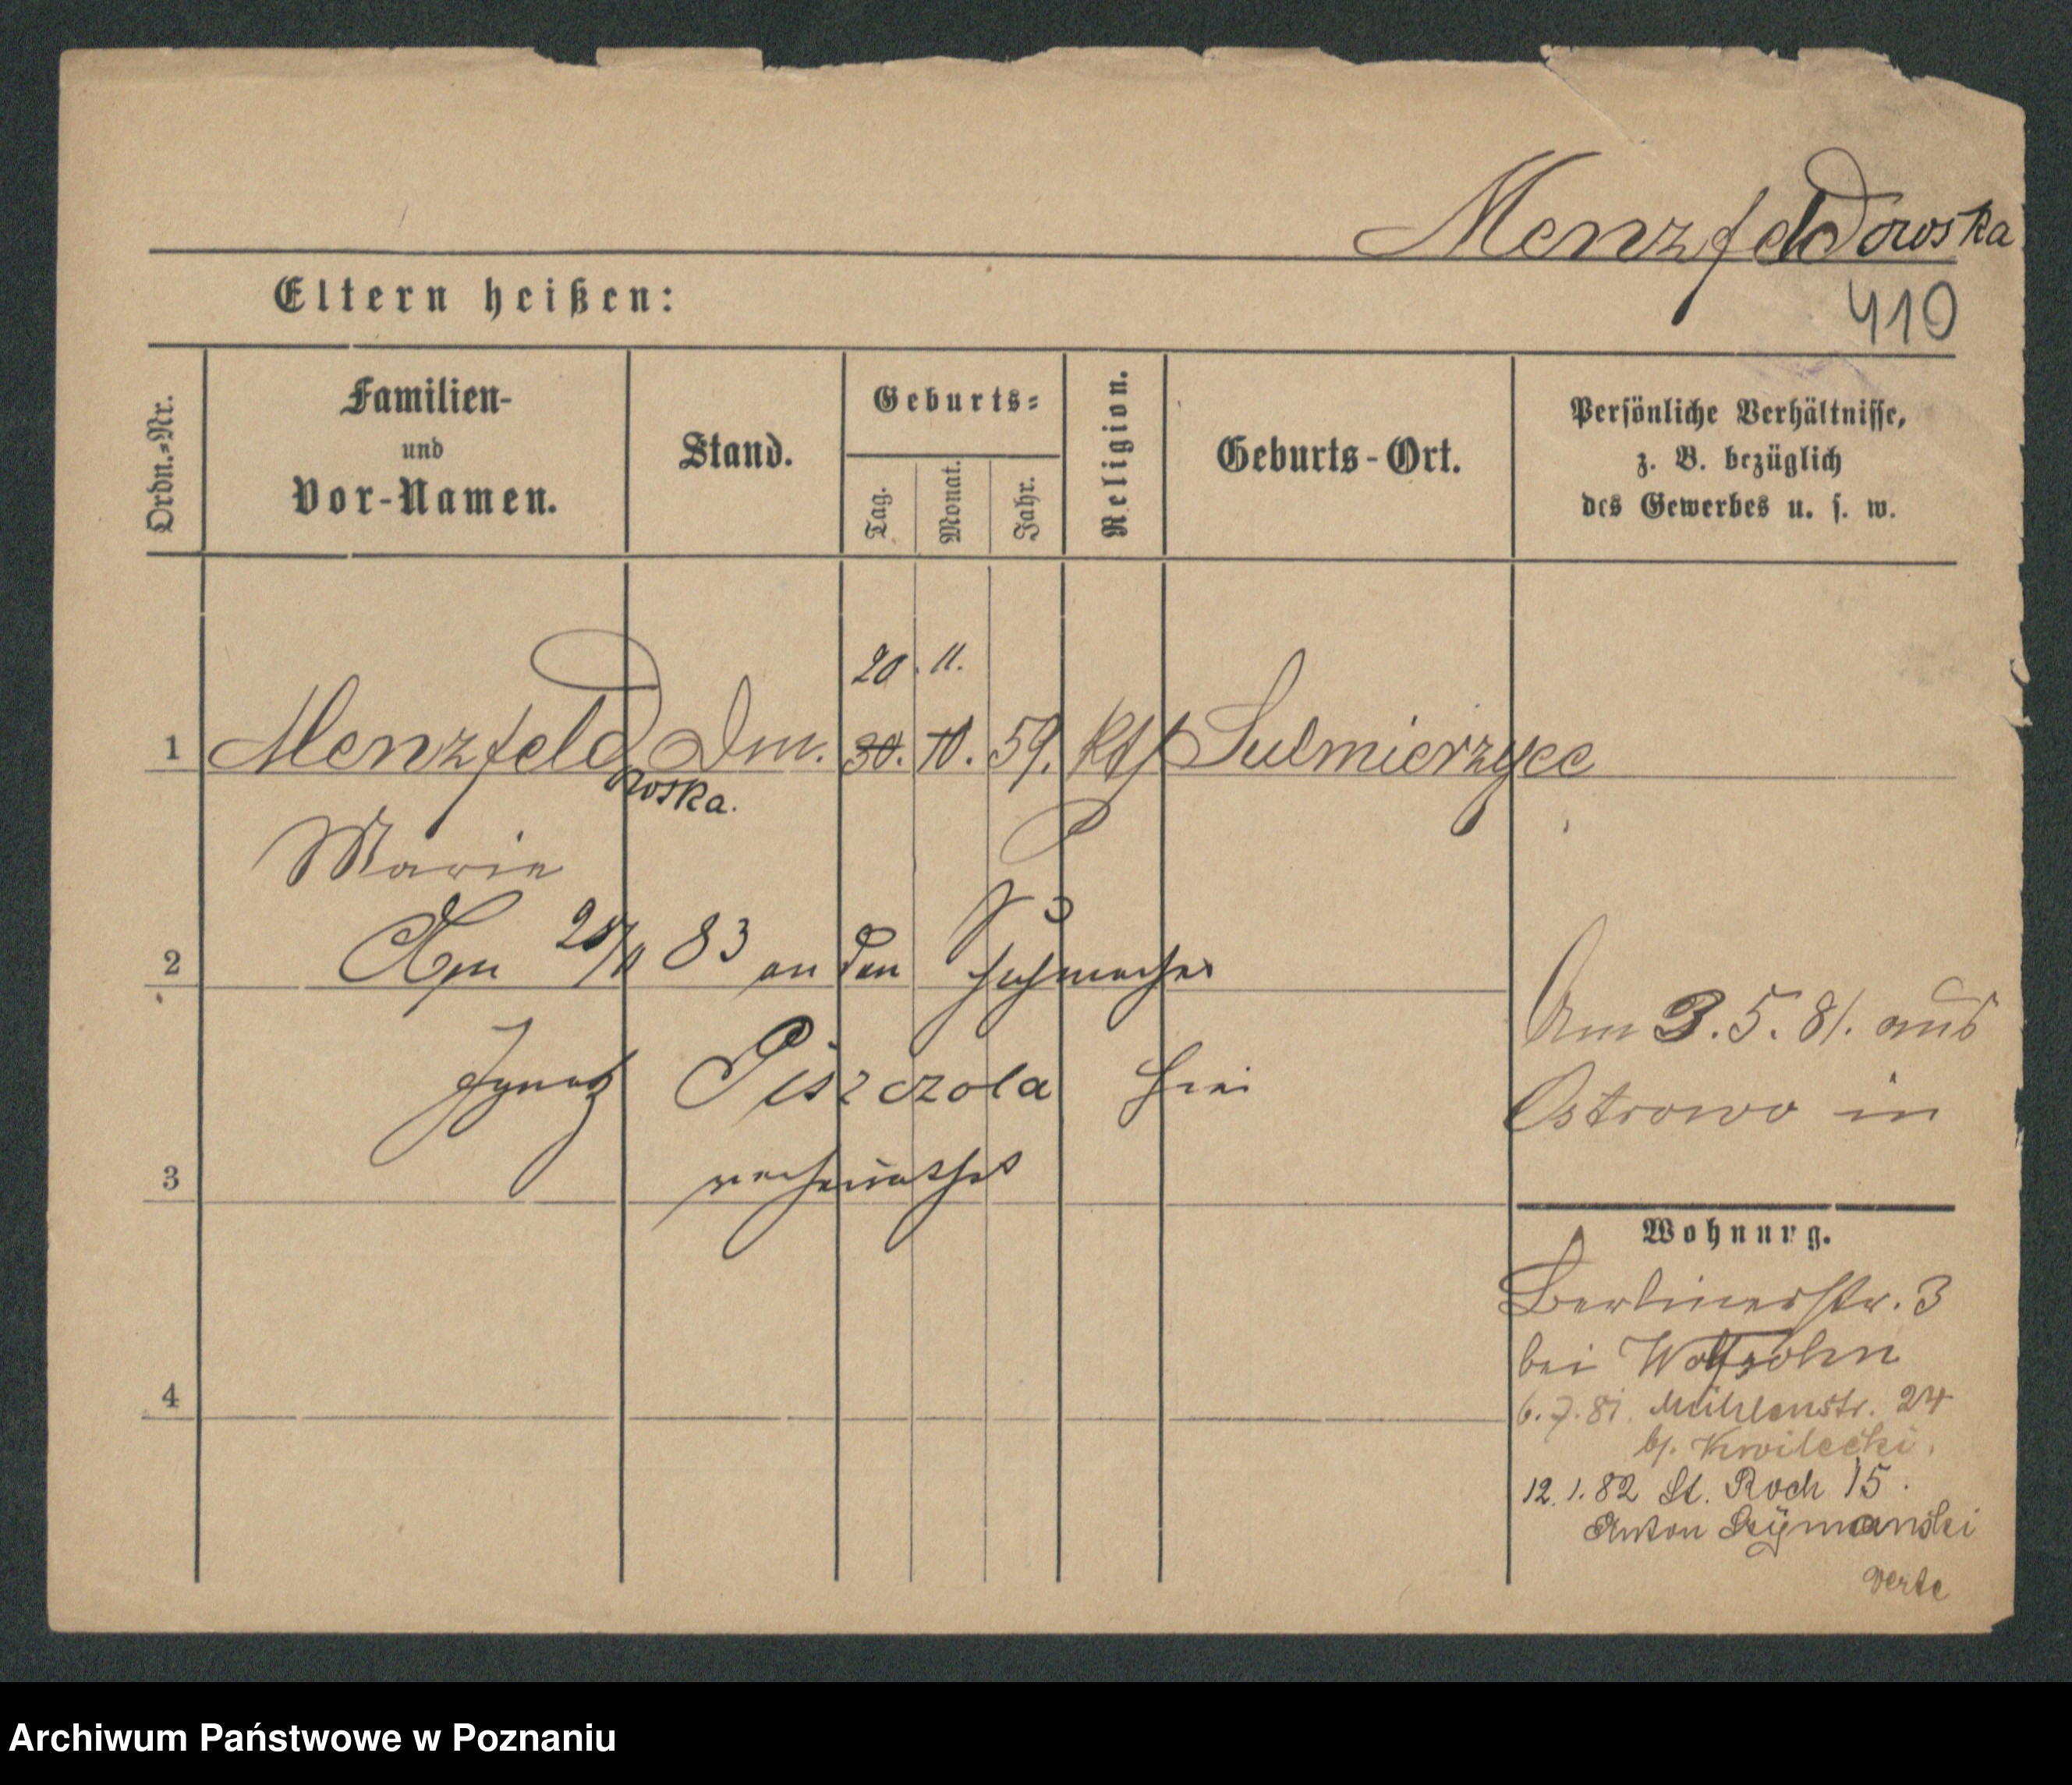 Menzfeldowska
410
Eltern heißen:
Ordn.-Nr.
Familien-
und
Vor-Namen.
Stand.
Geburts-
Tag.
Monat.
Jahr.
Religion.
Geburts-Ort.
Persönliche Verhältnisse,
z. B. bezüglich
des Gewerbes u. s. w.
20. 11.
1 Menzfeld Dm. 30. 10. 59. kth Sulmierzyce
owska.
Marie
2 Am 83 an den Schuhmacher
Ignatz Piszczola hier
3 verheirathet
4
Am 3. 5. 81. aus
Ostrowo in
Wohnung.
Berlinerstr. 3
bei Wolfsohn
6. 7. 81. Mühlenstr. 24
b/. Kwilecki.
12. 1. 82 St. Roch 15.
Anton Szymanski
verte
Archiwum Państwowe w Poznaniu